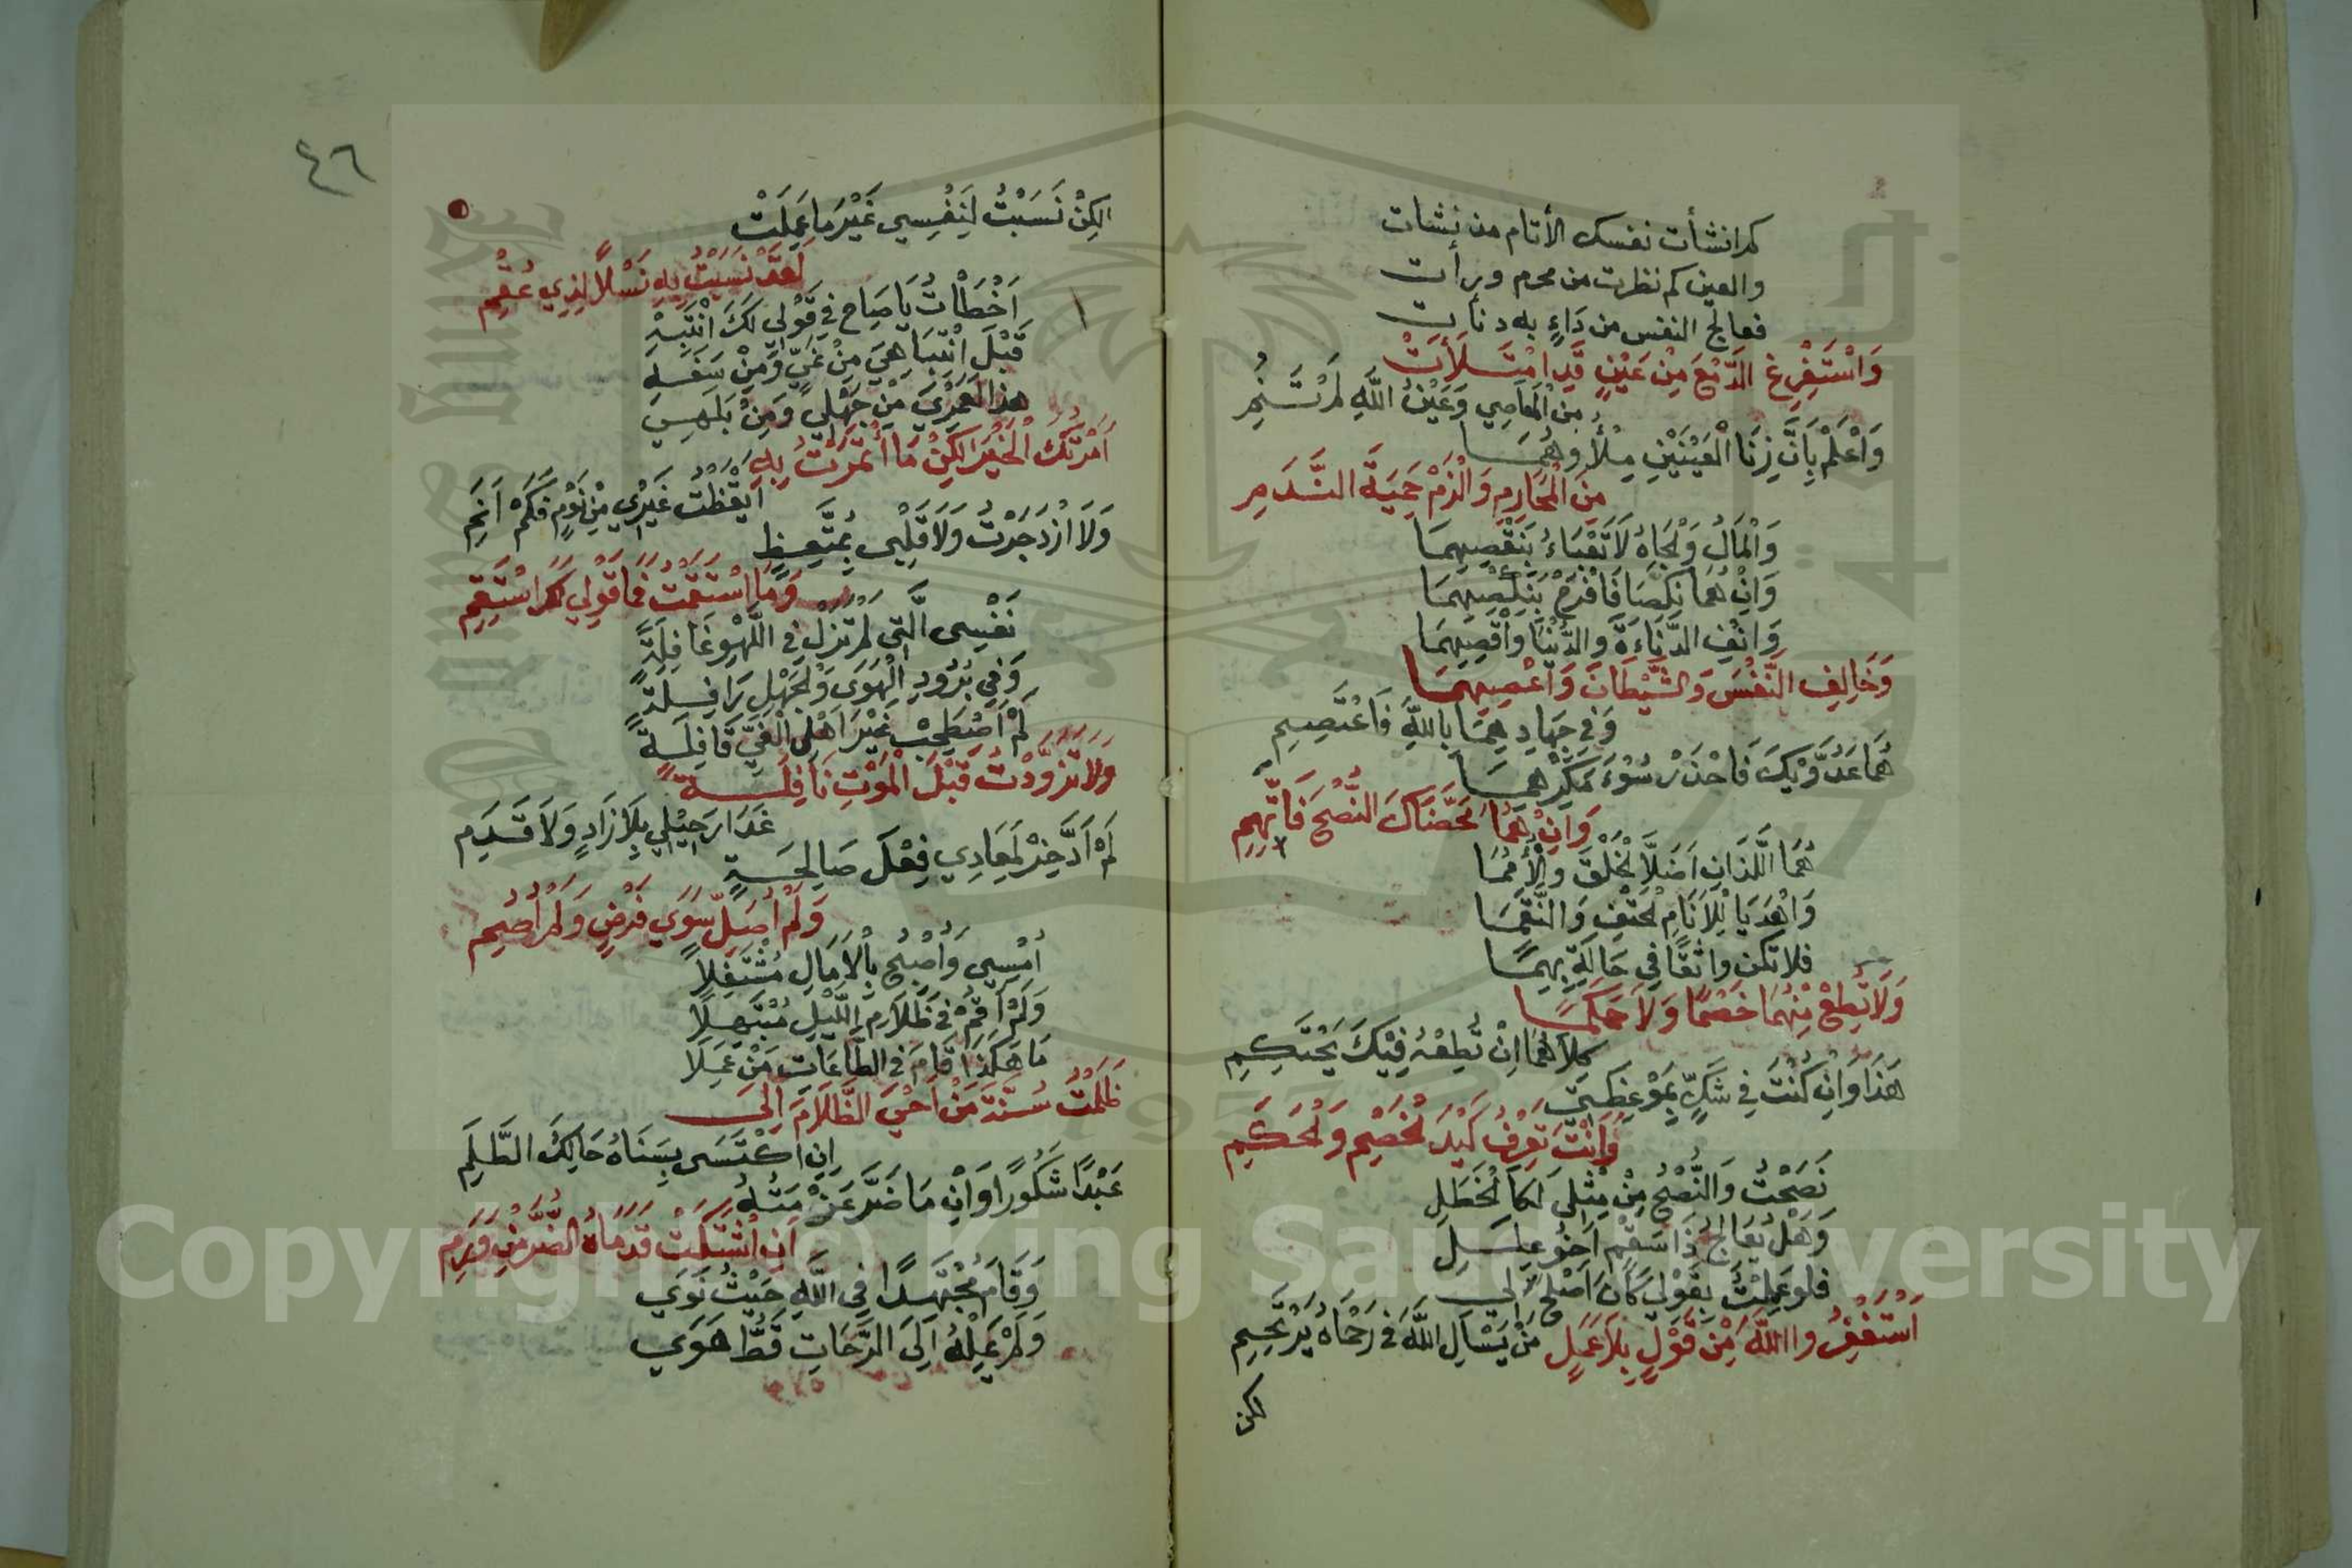 كم انشأت نفسك الأثام من نشات
والعين كم نظرت من محرم ورأت
فعالج النفس من دَاءٍ به دنأت
وَاسْتَفْرِغِ الدَّمْعَ مِنْ عَيْنٍ قَدِ امْتَلَأَتْ
مِنَ الْمَعَاصِي وَعَيْنُ اللَّهِ لَمْ تَنَمِ
وَاعْلَمْ بِأَنَّ زِنَا الْعَيْنَيْنِ مِلْأُوهُمَا
مِنَ الْمَحَارِمِ وَالْزَمْ حِمْيَةَ النَّدَمِ
وَالْمَالُ وَلْجَاهُ لَا تَعْبَاءْ بِنَقْصِهِمَا
وَانْ هُمَا نَكَصَا فَافْرَحْ بِنَكْصِهِمَا
وَانْفِ الدَّنَاءَةَ وَالدُّنْيَا وَأَقْصِهِمَا
وَخَالِفِ النَّفْسَ وَالشَّيْطَانَ وَاعْصِهِمَا
وَفِي جِهَادِهِمَا بِاللَّهِ فَاعْتَصِمِ
هُمَا عَدُوَّيْكَ فَاحْذَرْ سُوْءَ مَكْرِهِمَا
وَانْ هُمَا مَحَّضَاكَ النُّصْحَ فَاتَّهِمِ
هُمَا اللَّذَانِ اَضَلَّا لْخَلْقَ وَالْأُمَمَا
وَاهْدَيَا لِلْاَنَامِ لْحَتْفَ وَالنِّقَمَا
فلا تكن واثقًا في حَالَةٍ بِهِمَا
وَلَا تُطِعْ مِنْهُمَا خَصْمًا وَلَا حَكَمًا
كِلَاهُمَا اِنْ تُطِعْهُ فِيْكَ يَحْتَكِمِ
هَذَا وَانْ كُنْتَ فِي شَكٍّ بِمَوْعِظَتِي
وَانْتَ تَعْرِفُ كَيْدَ لْخَصْمِ وَلْحَكَمِ
نَصَحْتُ وَالنُّصْحُ مِنْ مِثْلِي لكَالْخَطَلِ
وَهَلْ يُعَالِجُ ذَا سَقْمٍ اَخُو عِلَلِ
فلو عَمِلْتُ بِقَوْلِي كَانَ اَصْلَحَ لِي
اَسْتَغْفِرُ واالله مِنْ قَوْلٍ بِلَا عَمَلٍ
مَنْ يَسْاَلِ اللَّهَ فِي رُحْمَاهُ يَرْتَحِمِ
لكن
٤٦
لكِنْ نَسَبْتُ لِنَفْسِي غَيْرَ مَا عَمِلَتْ
لَقَدْ نَسَبْتُ بِهِ نَسْلًا لِذِي عُقُمِ
اَخْطَاْتُ يَا صَاحِ فِي قَوْلِي لَكَ انْتَبِهْ
قَبْلَ انْتِبَاهِيَ مِنْ غَيٍّ وَمِنْ سَفَهِ
هذا لَعَمْرِيَ مِنْ جَهْلِي وَمِنْ بَلَهِي
اَمَرْتُكَ الْخَيْرَ لكِنْ مَا ائْتَمَرْتُ بِهِ
اَيْقَظْتُ غَيْرِي مِنْ نَوْمٍ فَكَمْ اَنَمِ
وَلَا ازْدَجَرْتُ وَلَا قَلْبِي بِمُتَّعِظٍ
وَمَا اسْتَقَمْتُ فَمَا قَوْلِي لَكَ اسْتَقِمِ
نَفْسِي الَّتِي لم تَزَلْ فِي اللَّهْوِ غَافِلَةً
وَفِي بُرُودِ الْهَوَى وَلْجَهْلِ رَافِلَةً
لَمْ اَصْطَحِبْ غَيْرَ اَهْلِ الْغَيِّ قَافِلَةً
وَلَا تَزَوَّدْتُ قَبْلَ الْمَوْتِ نَافِلَةً
غَدَا رَحِيْلِي بِلَا زَادٍ وَلَا قَدَمِ
لَمْ اَدَّخِرْ لِمَعَادِي فِعْلَ صَالِحَةٍ
وَلَمْ اُصَلِّ سِوَى فَرْضٍ وَلَمْ اَصُمِ
اُمْسِي وَاُصْبِحُ بِالْاَمَالِ مُشْتَغِلًا
وَلَمْ اَقُمْ فِي ظَلَامِ اللَّيْلِ مُبْتَهِلًا
مَا هَكَذَا قَامَ فِي الطَّاعَاتِ مَنْ عَمِلَا
ظَلَمْتُ سُنَّةَ مَنْ اَحْيَ الظَّلَامَ اِلَى
اِنِ اكْتَسَى بِسَنَاهُ حَالِكُ الظُّلَمِ
عَبْدًا شَكُورًا وَانْ مَا ضَرَّ عَنْ مَتْنِهُ
اَنِ اشْتَكَتْ قَدَمَاهُ الضُّرَّ مِنْ وَرَمِ
وَقَامَ مُجْتَهِدًا فِي اللَّهِ حَيْثُ نَوَى
وَلَمْ يَمِلْهُ اِلَى الرَّاحَاتِ قَطُّ هَوَى
Copyright © King Saud University
1957